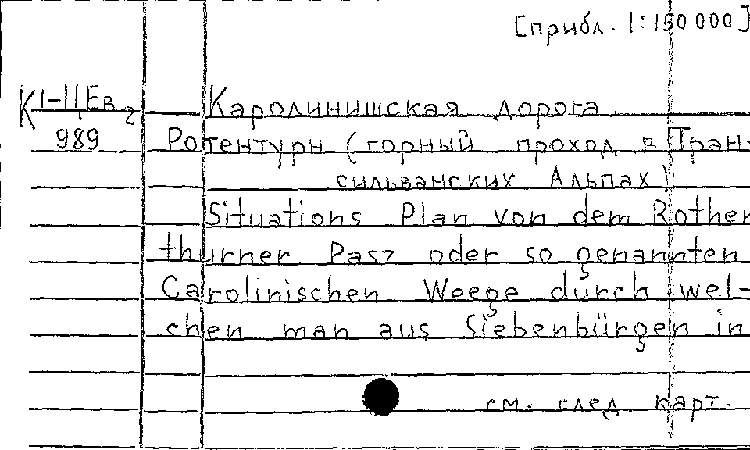 [прибл. 1:150 000]
К 1-11 Ев 2 Каролинишская дорога
989 Ротентурн (горный проход в Тран-
сильванских Альпах)
Situations Plan von dem Rothen
thurner Pasz oder so genannten
Carolinischen Weege durch wel-
chen man aus Siebenbürgen in
см. след. карт.